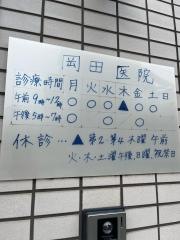 岡田医院
診療時間 月火水木金土日
午前9時〜12時 ○○○▲○○
午後5時〜7時 ○ ○ ○
休診…▲第2・第4木曜午前
火・木・土曜午後、日曜、祝祭日